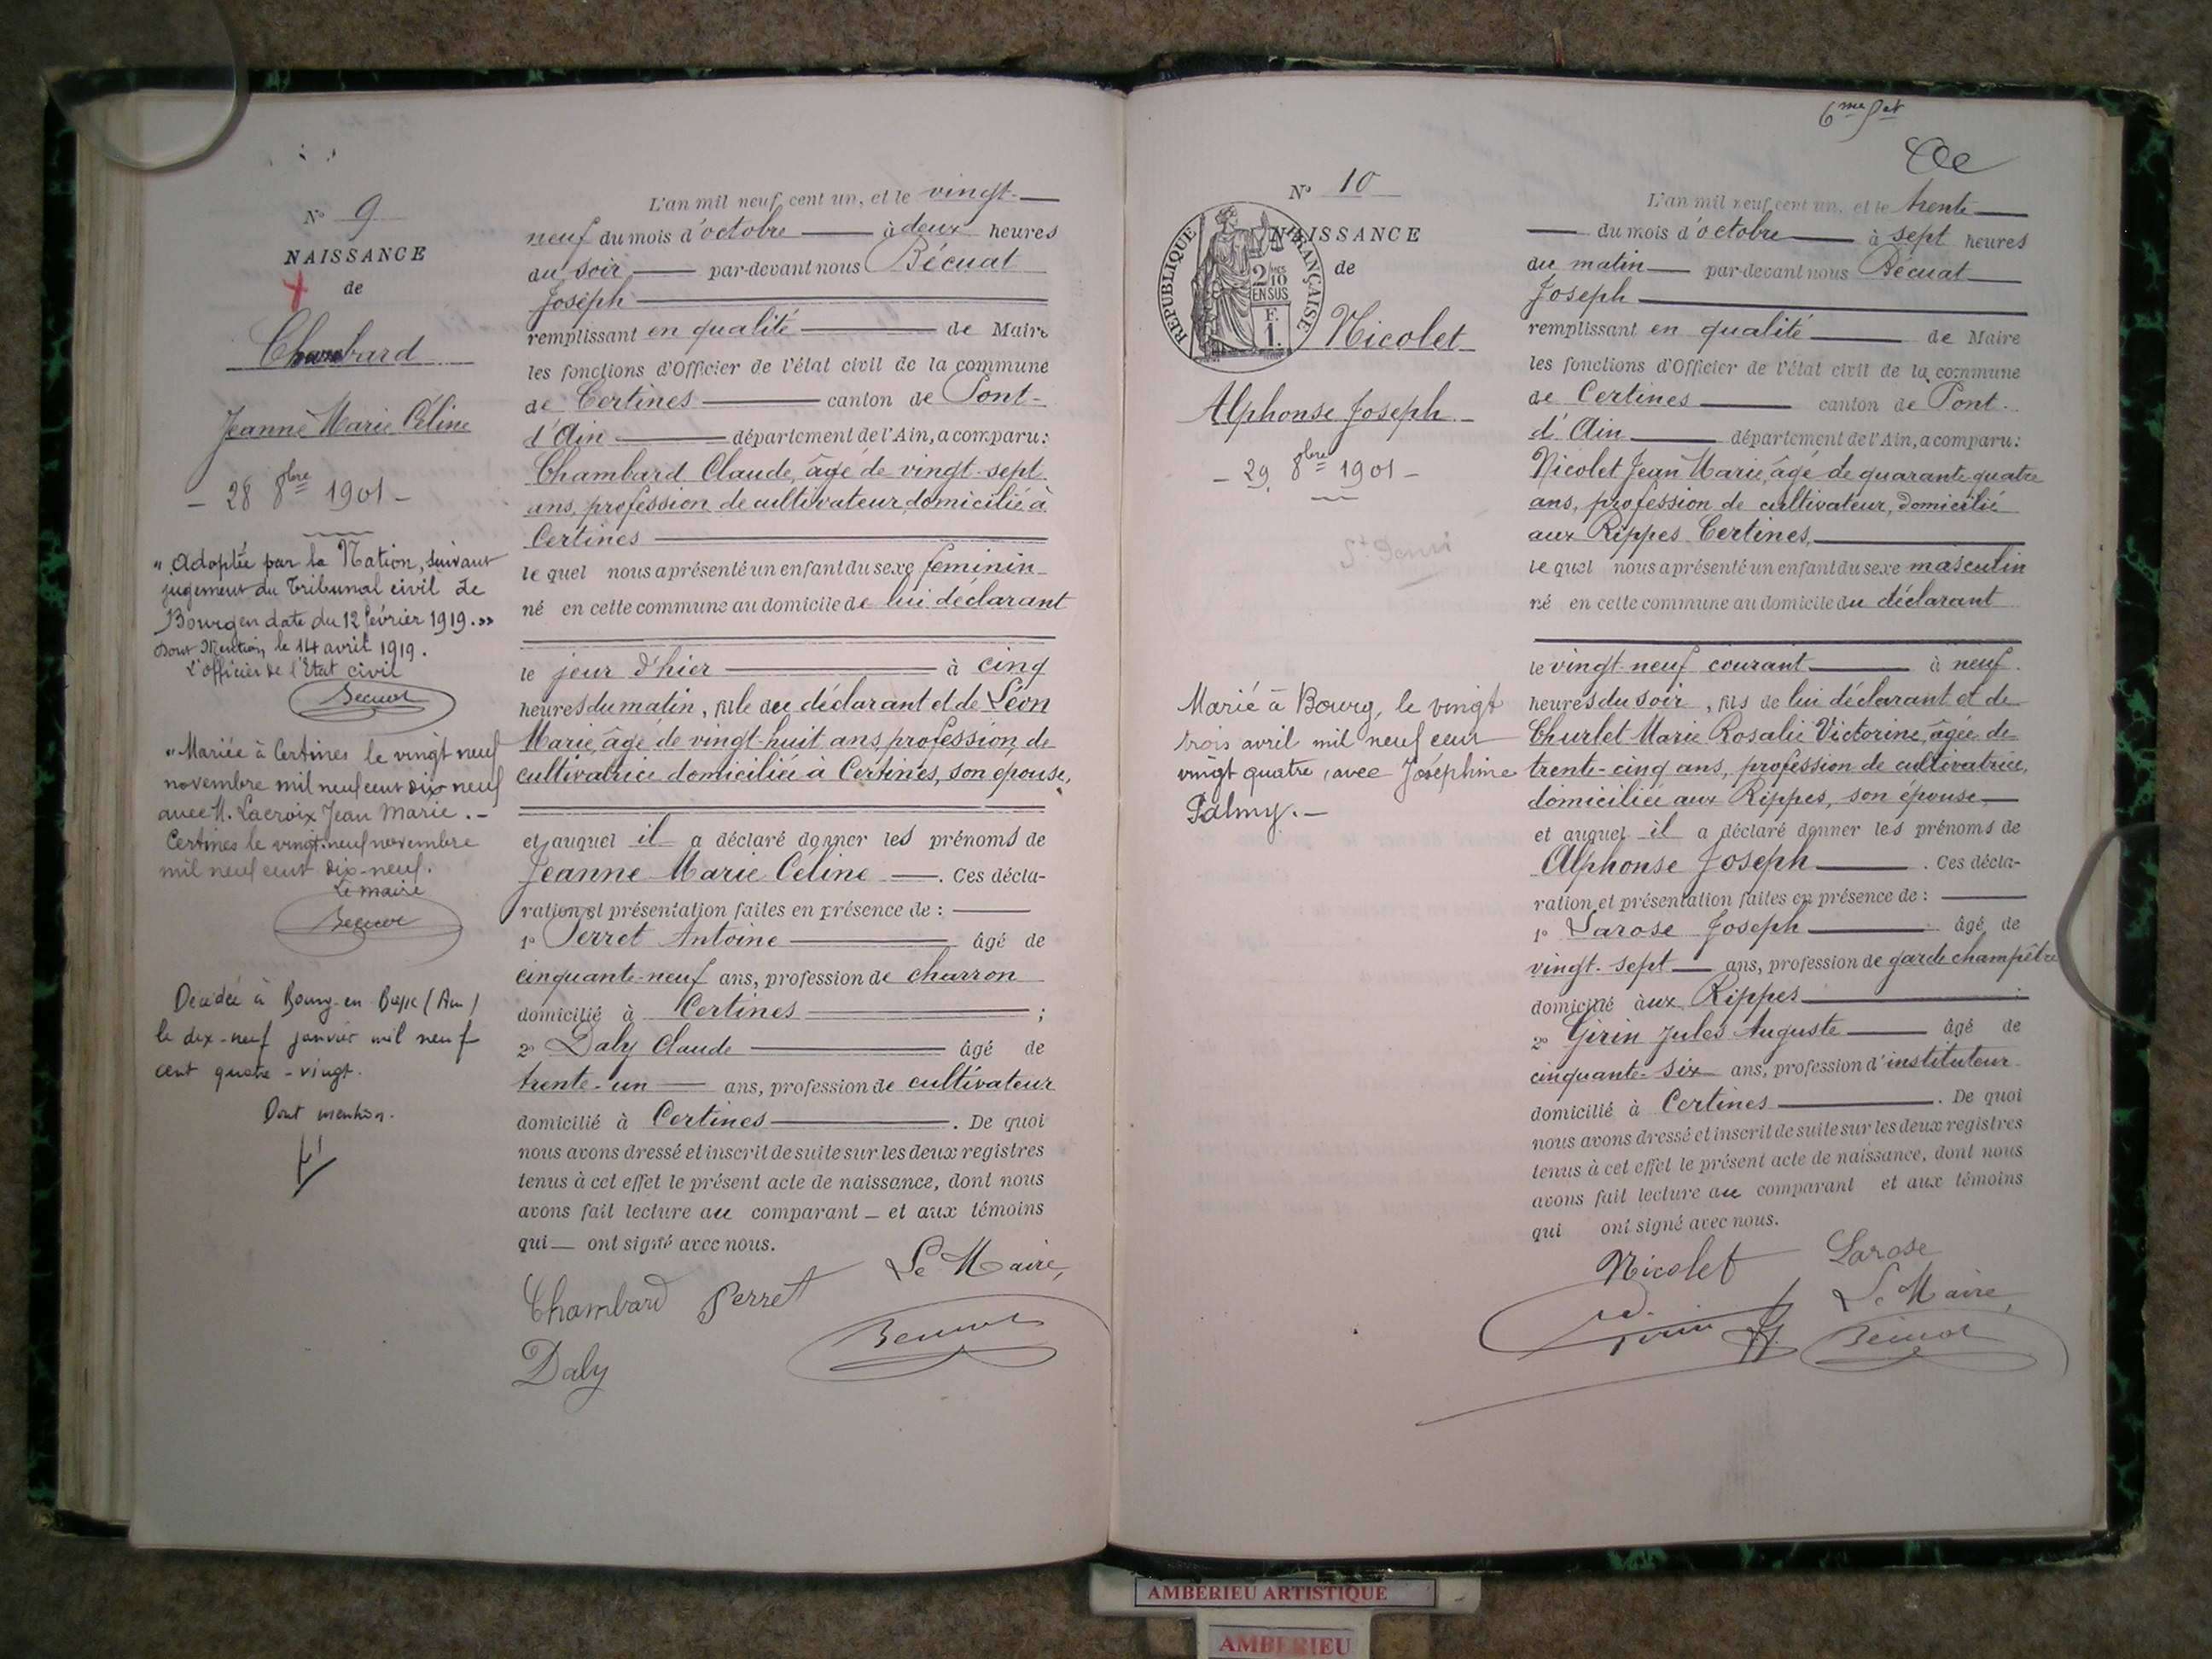 N° 9
NAISSANCE
de
Chambard
Jeanne Marie Céline
- 28 8bre 1901 -
"Adoptée par la Nation, suivant
jugement du Tribunal civil de
Bourg en date du 12 février 1919."
Dont Mention, le 14 avril 1919.
L'officier de l'Etat civil
Becuat
"Mariée à Certines le vingt neuf
novembre mil neuf cent dix neuf
avec M. Lacroix Jean Marie. -
Certines le vingt-neuf novembre
mil neuf cent dix-neuf.
Le maire
Becuat
Décédée à Bourg-en-Bresse (Ain)
le dix-neuf janvier mil neuf
cent quatre-vingt.
Dont mention.
L'an mil neuf cent un, et le vingt-
neuf du mois d'octobre à deux heures
du soir par-devant nous Bécuat
Joseph
remplissant en qualité de Maire
les fonctions d'Officier de l'état civil de la commune
de Certines canton de Pont-
d'Ain département de l'Ain, a comparu:
Chambard Claude, âgé de vingt-sept
ans, profession de cultivateur, domicilié à
Certines
le quel nous a présenté un enfant du sexe féminin
né en cette commune au domicile de lui déclarant
le jour d'hier à cinq
heures du matin, fille du déclarant et de Léon
Marie, âgé de vingt-huit ans, profession de
cultivatrice domiciliée à Certines, son épouse,
et auquel il a déclaré donner les prénoms de
Jeanne Marie Céline . Ces décla-
ration et présentation faites en présence de :
1° Perret Antoine âgé de
cinquante-neuf ans, profession de charron
domicilié à Certines ;
2° Daly Claude âgé de
trente-un ans, profession de cultivateur
domicilié à Certines . De quoi
nous avons dressé et inscrit de suite sur les deux registres
tenus à cet effet le présent acte de naissance, dont nous
avons fait lecture au comparant et aux témoins
qui ont signé avec nous.
Le Maire,
Chambard Perret
Becuat
Daly
N° 10
NAISSANCE
de
RÉPUBLIQUE FRANÇAISE
2/10
EN SUS
F.
1.
Nicolet
Alphonse Joseph
- 29 8bre 1901 -
Marié à Bourg, le vingt
trois avril mil neuf cent
vingt quatre, avec Joséphine
Palmy. -
L'an mil neuf cent un, et le trente
du mois d'octobre à sept heures
du matin par-devant nous Bécuat
Joseph
remplissant en qualité de Maire
les fonctions d'Officier de l'état civil de la commune
de Certines canton de Pont-
d'Ain département de l'Ain, a comparu:
Nicolet Jean Marie, âgé de quarante quatre
ans, profession de cultivateur, domicilié
aux Rippes Certines
le quel nous a présenté un enfant du sexe masculin
né en cette commune au domicile du déclarant
le vingt-neuf courant à neuf
heures du soir, fils de lui déclarant et de
Churlet Marie Rosalie Victorine, âgée de
trente-cinq ans, profession de cultivatrice,
domiciliée aux Rippes, son épouse
et auquel il a déclaré donner les prénoms de
Alphonse Joseph . Ces décla-
ration et présentation faites en présence de :
1° Larose Joseph âgé de
vingt-sept ans, profession de garde champêtre
domicilié aux Rippes ;
2° Girin Jules Auguste âgé de
cinquante-six ans, profession d'instituteur
domicilié à Certines . De quoi
nous avons dressé et inscrit de suite sur les deux registres
tenus à cet effet le présent acte de naissance, dont nous
avons fait lecture au comparant et aux témoins
qui ont signé avec nous.
Nicolet Larose
Le Maire,
Girin Bécuat
AMBERIEU ARTISTIQUE
AMBERIEU